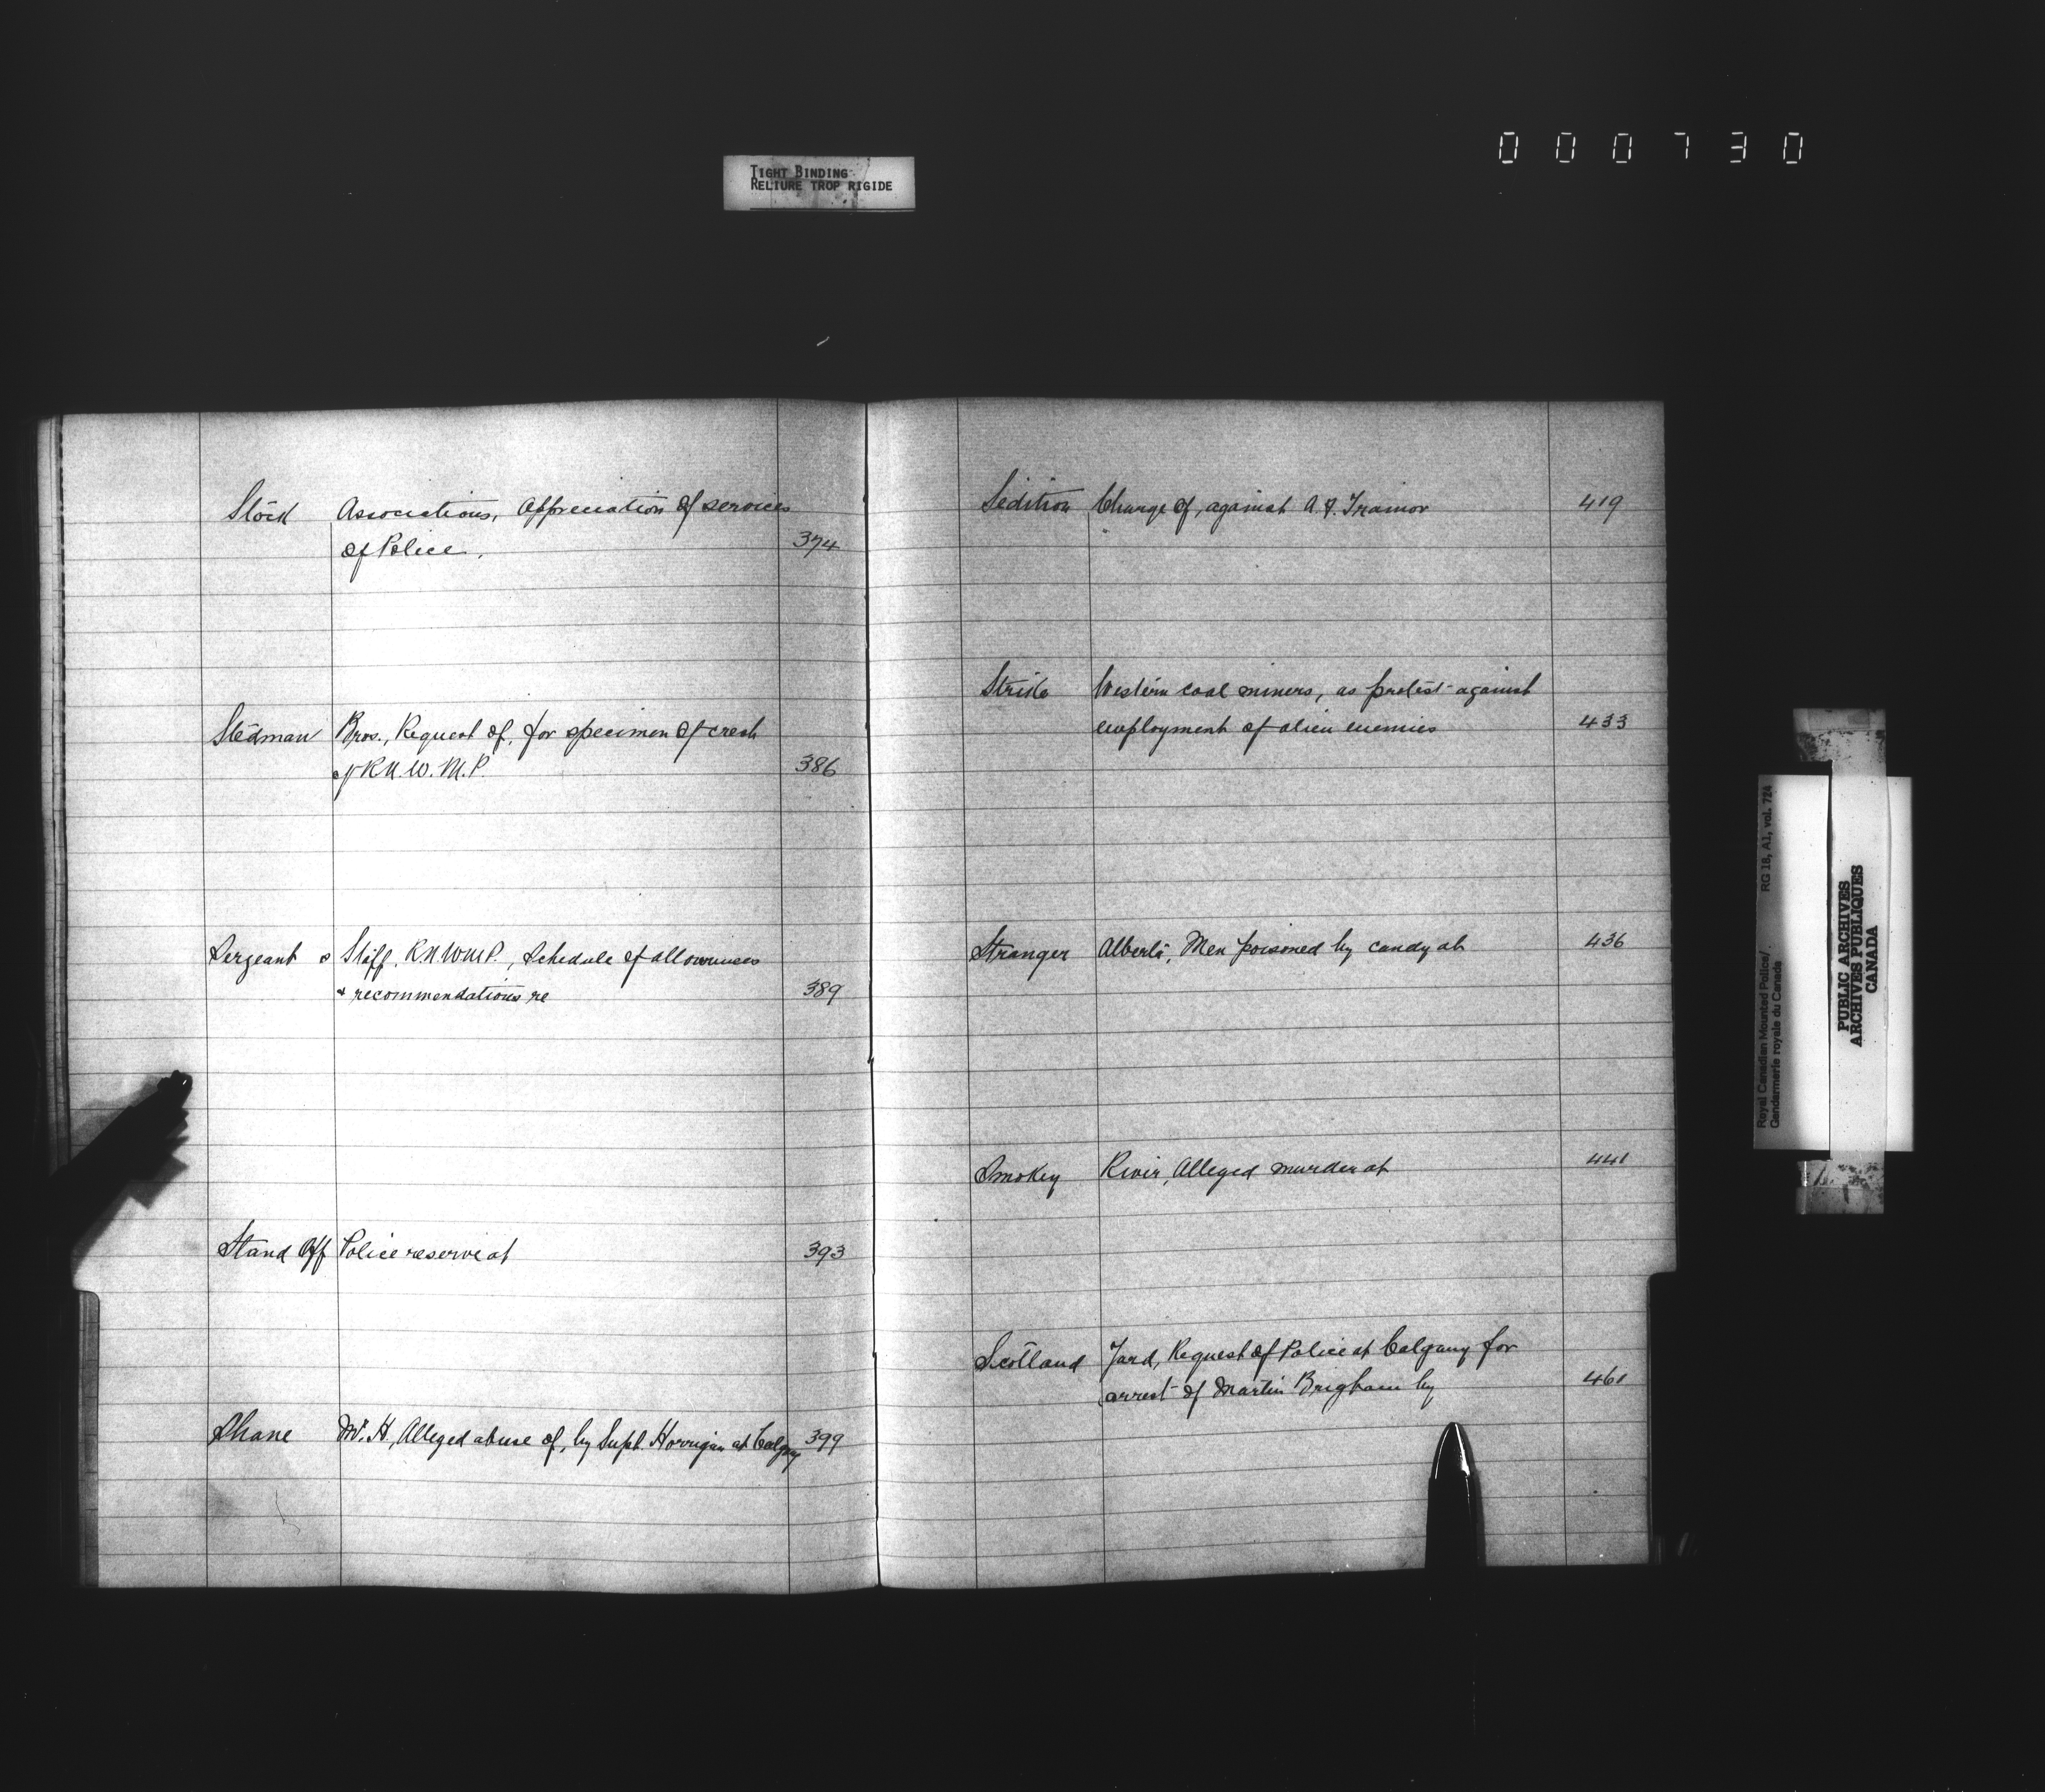 000730
TIGHT BINDING
RELIURE TROP RIGIDE
Stock Associations, Appreciation of services
of Police. 374
Stedman Bros., Request of, for specimen of crest
of R.N.W.M.P. 386
Sergeant s Staff, R.N.W.M.P., Schedule of allowances
& recommendations re 389
Stand Off Police reserve at 393
Shane W. H., Alleged abuse of, by Supt. Horrigan at Calgary 399
Sedition Charge of, against A. F. Trainor 419
Strike Western coal miners, as protest against
employment of alien enemies 433
Stranger Alberta, Men poisoned by candy at 436
Smokey River, Alleged murder at 441
Scotland Yard, Request of Police at Calgary for
arrest of Martin Brigham by 461
Royal Canadian Mounted Police/ RG 18, A1, vol. 724
Gendarmerie royale du Canada
PUBLIC ARCHIVES
ARCHIVES PUBLIQUES
CANADA